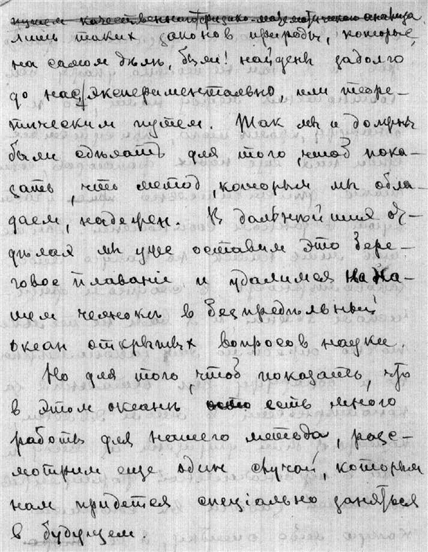 путемъ качественнаго физико-математическаго анализа
лишь такихъ законовъ природы, которые,
на самом дѣлѣ, были найдены задолго
до нас экспериментально, или теоре-
тическим путем. Так мы и должны
были сдѣлать для того, чтоб пока-
зать, что метод, которым мы обла-
даем, надежен. В дальнѣйших от-
дѣлах мы уже оставим это бере-
говое плаваніе и удалимся на на-
шем челнокѣ в безпредѣльный
океан открытых вопросов науки.
Но для того, чтоб показать, что
в этом океанѣ есть много
работы для нашего метода, разс-
мотрим еще один случай, которым
нам придется спеціально заняться
в будущем.